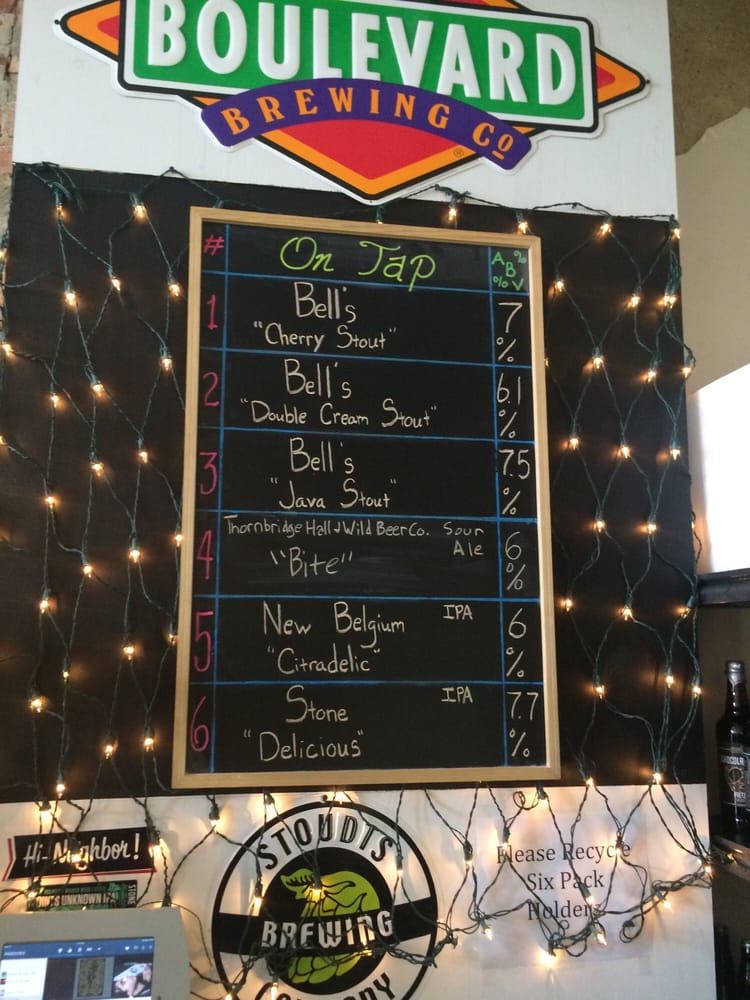 BOULEVARD
BREWING Co
®
# On Tap A B V % %
1 Bell's 7
"Cherry Stout" %
2 Bell's 6.1
"Double Cream Stout" %
3 Bell's 7.5
"Java Stout" %
4 Thornbridge Hall & Wild Beer Co. Sour Ale 6
"Bite" %
5 New Belgium IPA 6
"Citradelic" %
6 Stone IPA 7.7
"Delicious" %
Hi-Neighbor!
UNKNOWN IPA STONE
STOUDTS
BREWING
COMPANY
Please Recycle
Six Pack
Holders